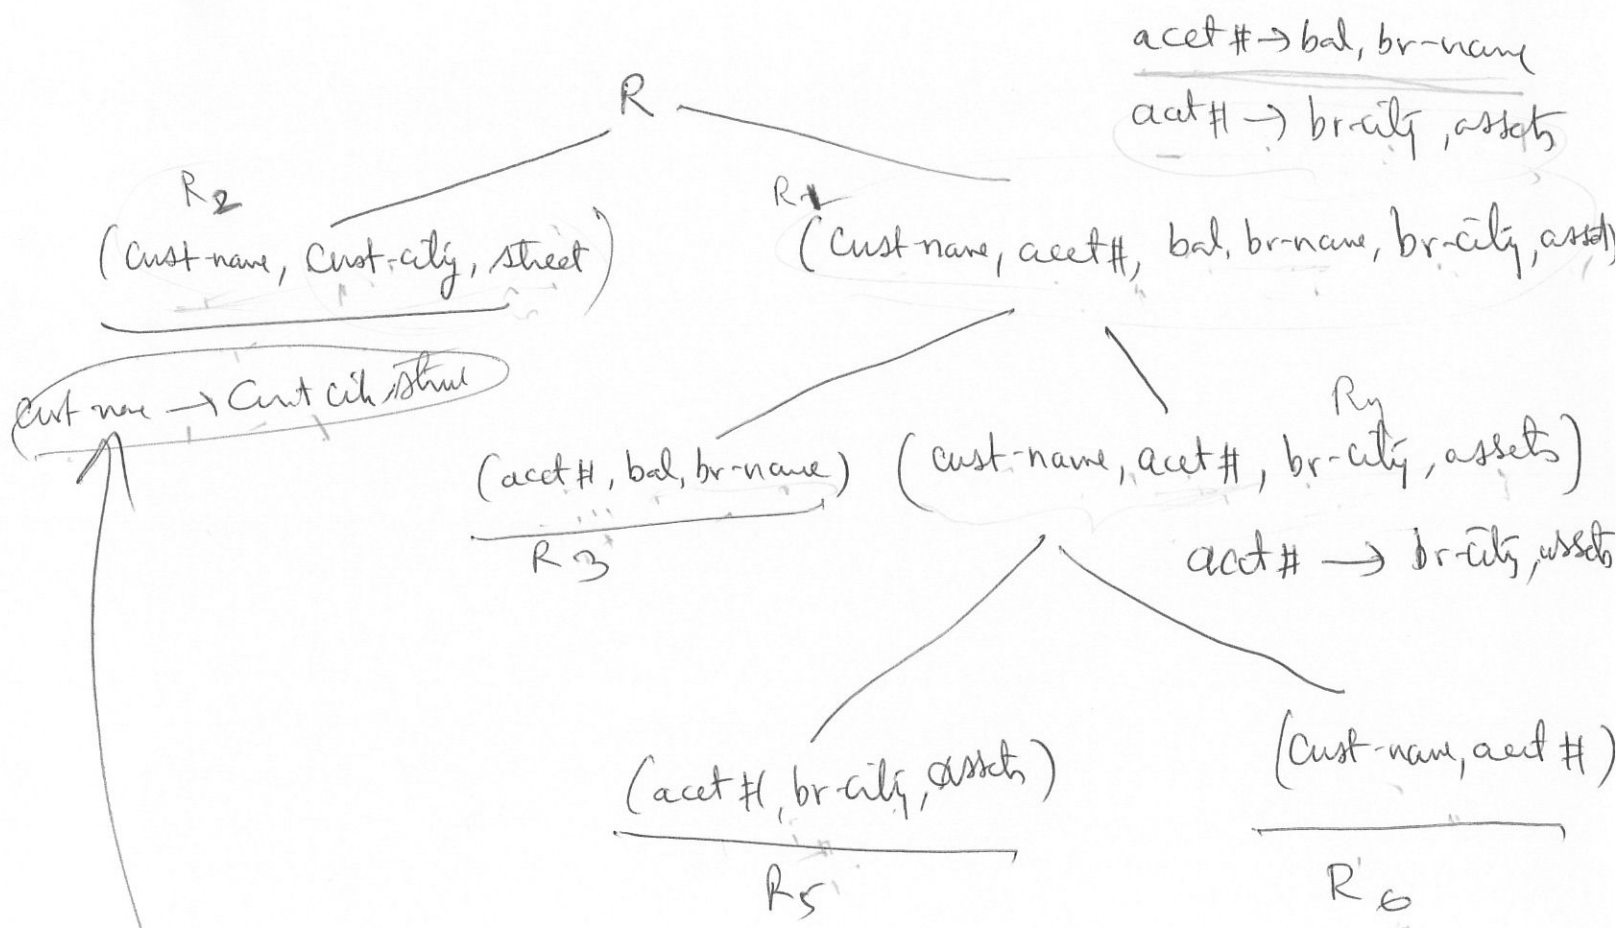 acct # → bal, br-name
R
acct # → br-city, assets
R2
R1
(cust-name, cust-city, street)
(cust-name, acct #, bal, br-name, br-city, assets
cust name → cust city street
R4
(acct #, bal, br-name)
(cust-name, acct #, br-city, assets)
R3
acct # → br-city, assets
(cust-name, acct #)
(acct #, br-city, assets)
R5
R6